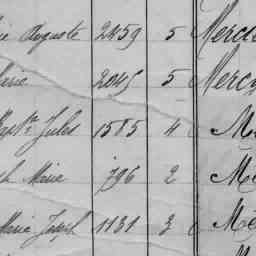 Auguste 2459 5 Merci
2045 5 Mercy
Bapte Jules 1585 4 M
Marie 796 2 Me
Marie Joseph 1131 3 Me